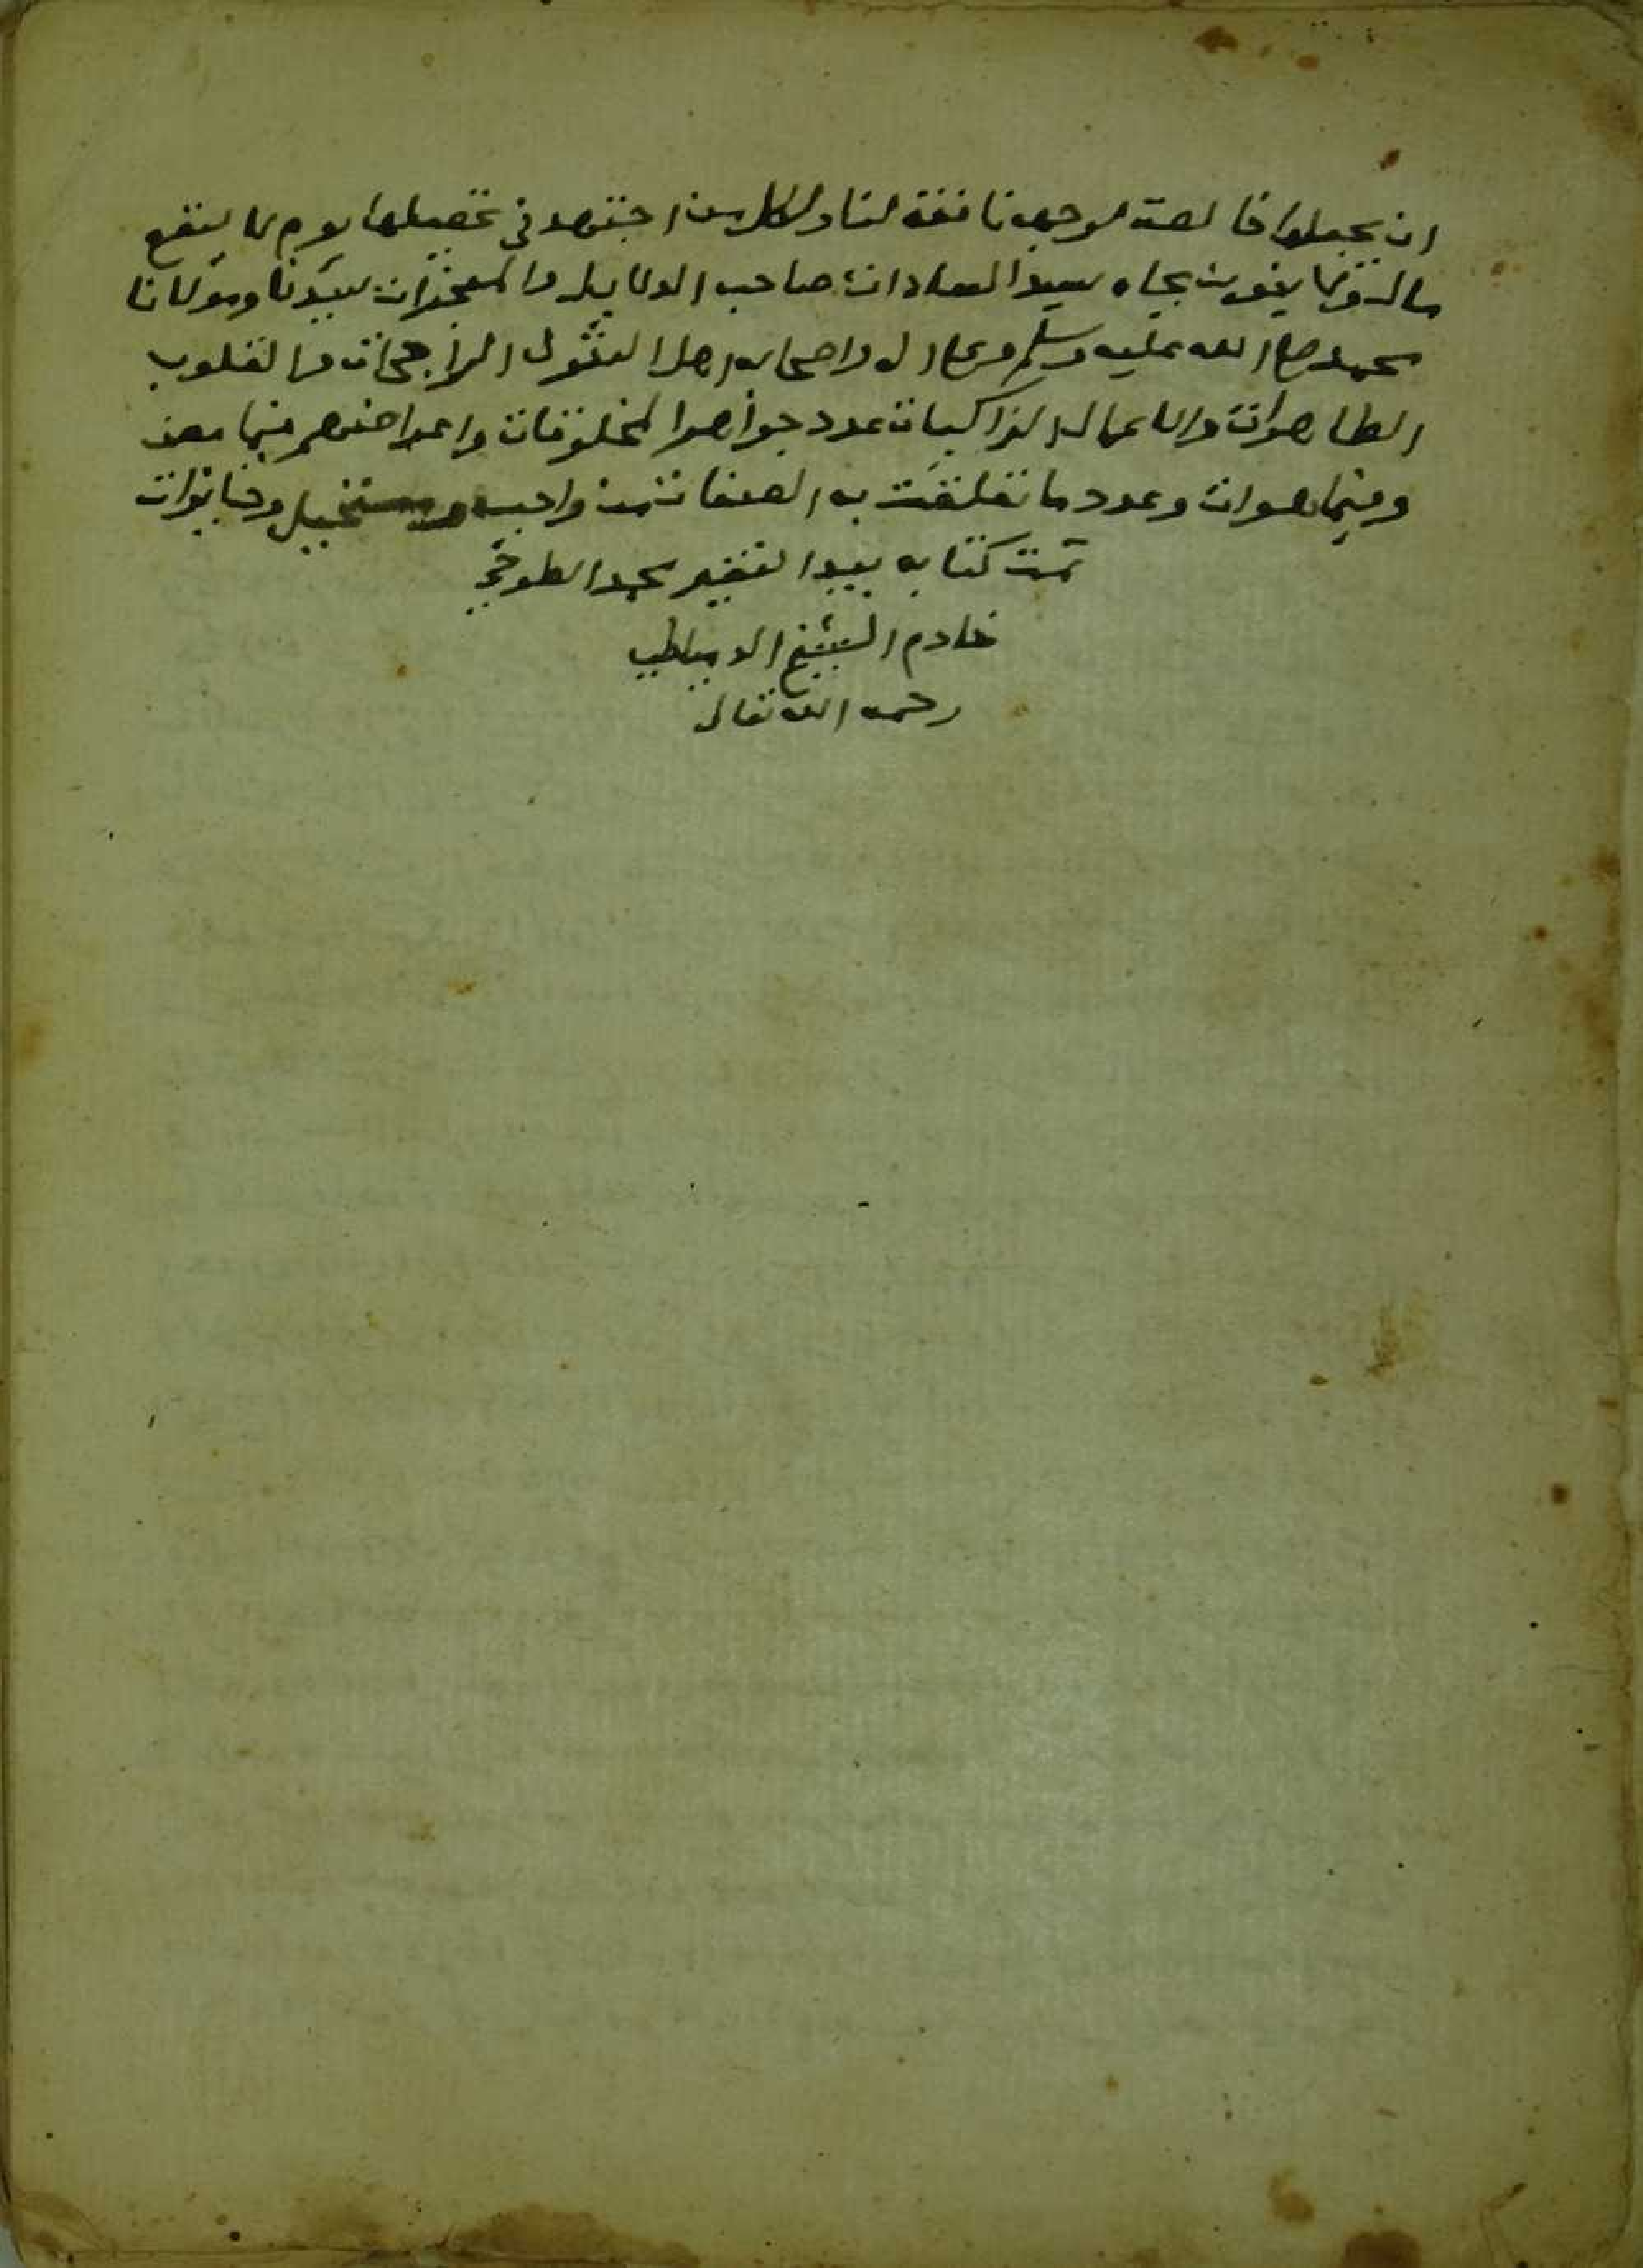 ان يجعلها خالصة لوجهه نافعة لنا ولكل من اجتهد في تحصيلها يوم لا ينفع
مال ولا بنون بجاه سيد السادات صاحب الدلايل والمعجزات سيدنا ومولانا
محمد صلى الله عليه وسلم وعلى اله واصحابه اهل العقول الراجحات والقلوب
الطاهرات والاعمال الزاكيات عدد جواهر المخلوقات واعراضهم فيما مضى
وفيما هو ات وعدد ما تعلقت به الصفات من واجب ومستحيل وجايزات
تمت كتابه بيد الفقير محمد الطوخي
خادم الشيخ الدمياطي
رحمه الله تعالى